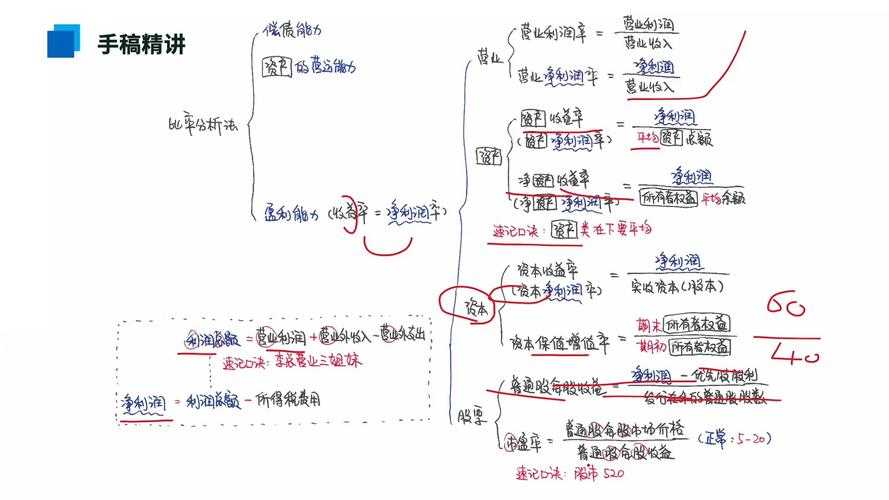 手稿精讲
比率分析法
偿债能力
资产的营运能力
盈利能力（收益率=净利润率）
营业
营业利润率 = 营业利润 / 营业收入
营业净利润率 = 净利润 / 营业收入
资产
资产收益率
（资产净利润率） = 净利润 / 平均资产总额
净资产收益率
（净资产净利润率） = 净利润 / 所有者权益平均余额
速记口诀：资产类在下要平均
资本
资本收益率
（资本净利润率） = 净利润 / 实收资本（股本）
资本保值增值率 = 期末所有者权益 / 期初所有者权益
60
40
股票
普通股每股收益 = 净利润-优先股股利 / 发行在外的普通股股数
市盈率 = 普通股每股市场价格 / 普通股每股收益 （正常：5-20）
速记口诀：股市520
利润总额=营业利润+营业外收入-营业外支出
速记口诀：李家营业三姐妹
净利润 = 利润总额-所得税费用